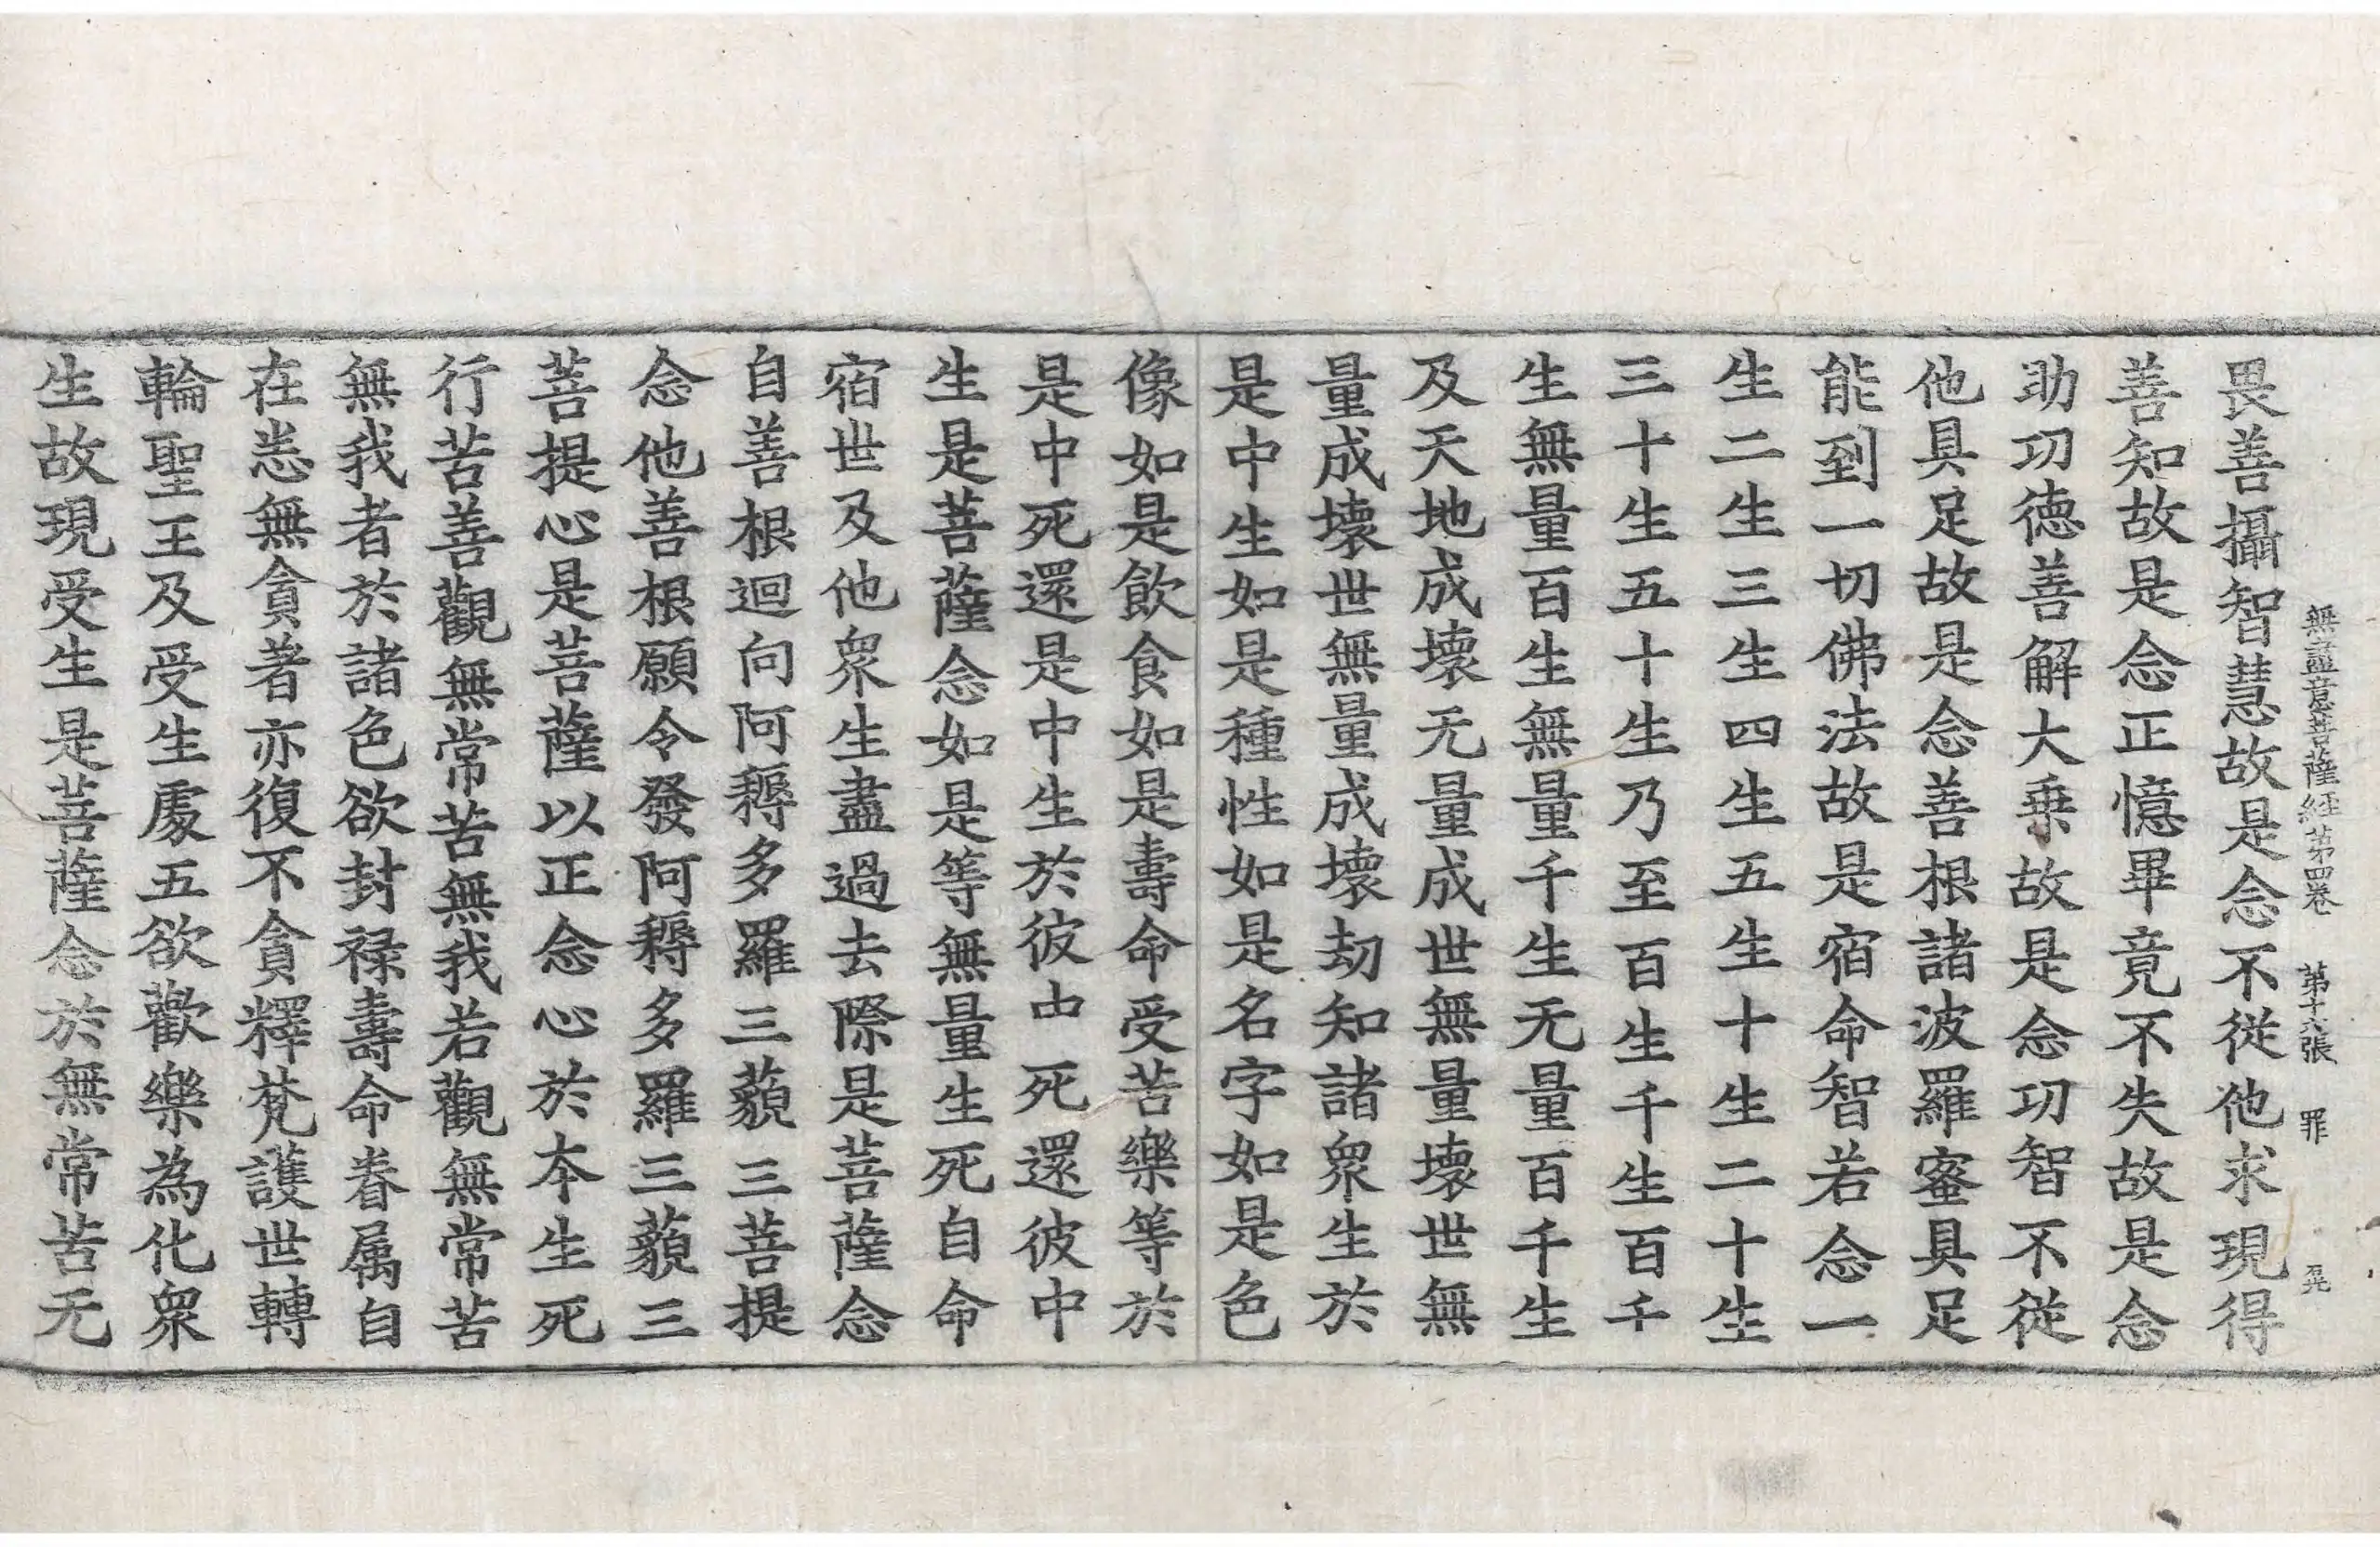 無盡意菩薩経苐四卷 苐十六張 罪
畏善攝智慧故是念不從他求現得
善知故是念正憶畢竟不失故是念
助功徳善解大乗故是念功智不從
他具足故是念善根諸波羅蜜具足
能到一切佛法故是宿命智若念一
生二生三生四生五生十生二十生
三十生五十生乃至百生千生百千
生無量百生無量千生无量百千生
及天地成壞无量成世無量壞世無
量成壞世無量成壞劫知諸衆生於
是中生如是種性如是名字如是色
像如是飲食如是壽命受苦樂等於
是中死還是中生於彼中死還彼中
生是菩薩念如是等無量生死自命
宿世及他衆生盡過去際是菩薩念
自善根迴向阿耨多羅三藐三菩提
念他善根願令發阿耨多羅三藐三
菩提心是菩薩以正念心於本生死
行苦善觀無常苦無我若觀無常苦
無我者於諸色欲封祿壽命眷属自
在恙無貪著亦復不貪釋梵護世轉
輪聖王及受生處五欲歡樂為化衆
生故現受生是菩薩念於無常苦无